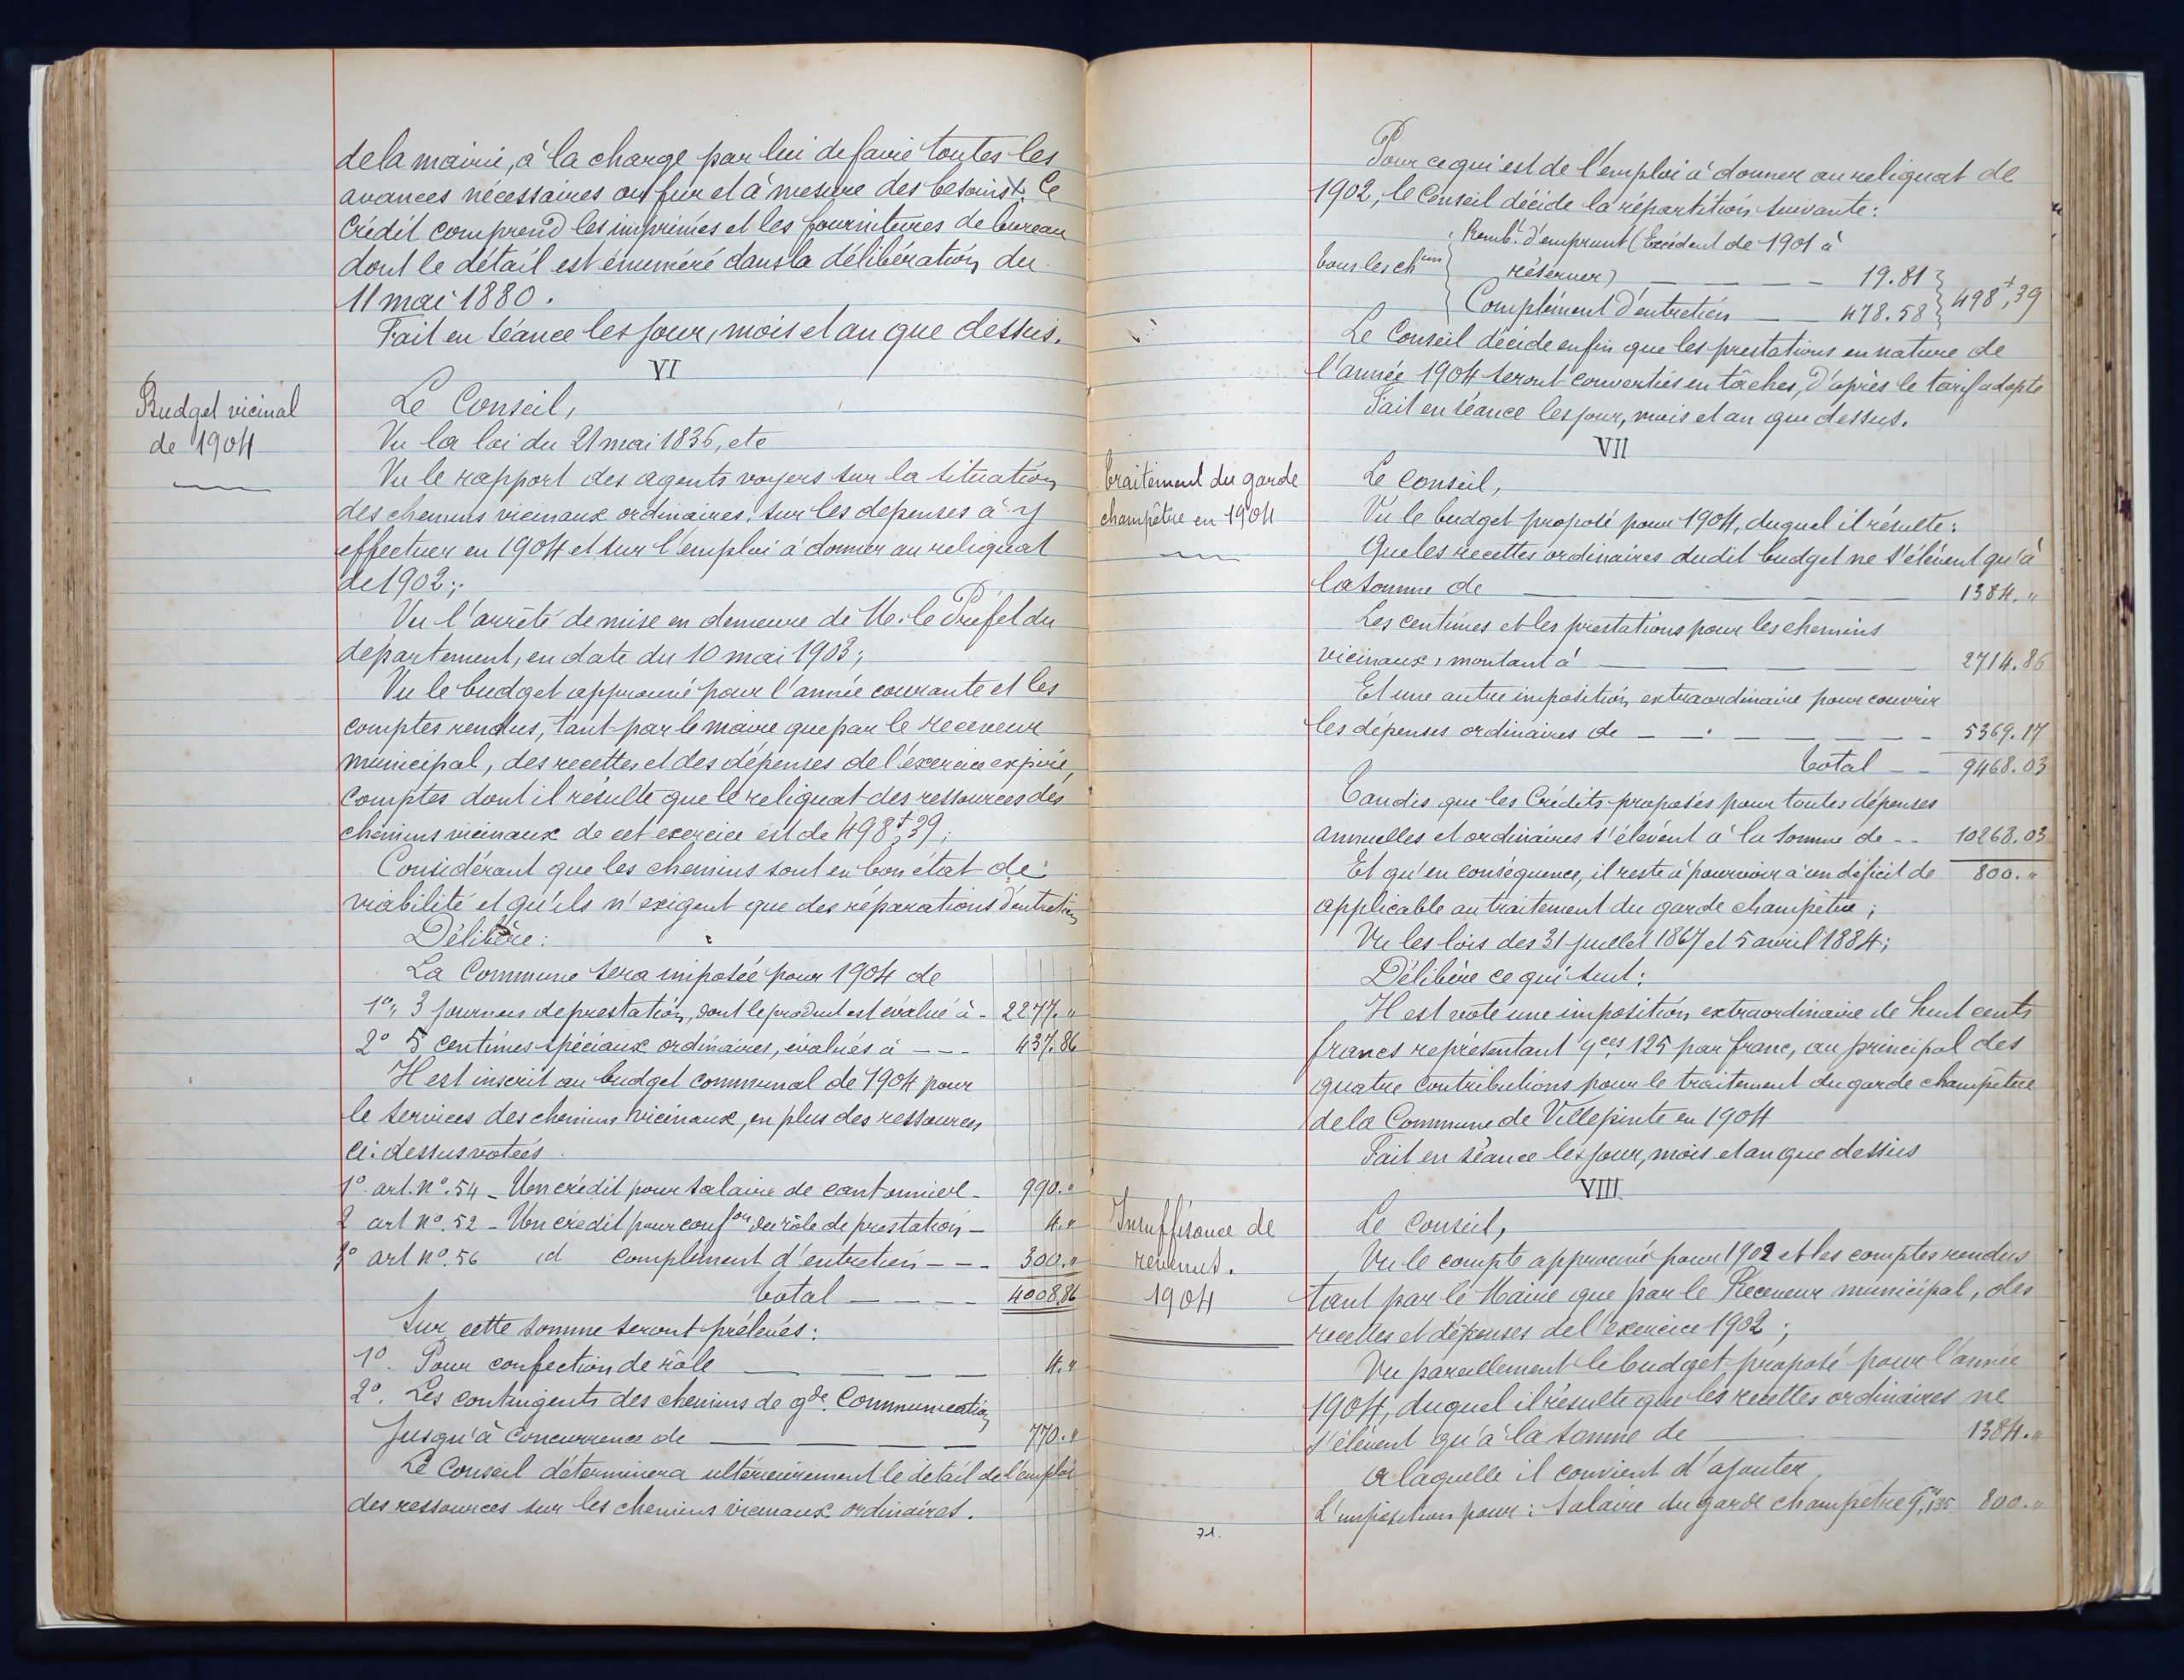 de la mairie, à la charge par lui de faire toutes les
avances nécessaires au fur et à mesure des besoins. Ce
Crédit comprend les imprimés et les fournitures de bureau
dont le détail est énuméré dans la délibération du
11 mai 1880.
Fait en séance les jour, mois et an que dessus.
VI
Budget vicinal
de 1904
Le Conseil,
Vu la loi du 21 mai 1836, etc
Vu le rapport des agents voyers sur la situation
des chemins vicinaux ordinaires, sur les dépenses à y
effectuer en 1904 et sur l'emploi à donner au reliquat
de 1902;
Vu l'arrêté de mise en demeure de M. le Préfet du
département, en date du 10 mai 1903;
Vu le budget approuvé pour l'année courante et les
comptes rendus, tant par le maire que par le receveur
municipal, des recettes et des dépenses de l'exercice expiré,
comptes dont il résulte que le reliquat des ressources des
chemins vicinaux de cet exercice est de 498f,39;
Considérant que les chemins sont en bon état de
viabilité et qu'ils n'exigent que des réparations d'entretien
Délibère:
La Commune sera imposée pour 1904 de
1°, 3 journées de prestation, dont le produit est évalué à - 2277."
2° 5 centimes spéciaux ordinaires, évalués à - - - 437.86
Il est inscrit au budget communal de 1904 pour
le services des chemins vicinaux, en plus des ressources
ci-dessus votées.
1° art. n°. 54 - Un crédit pour salaire de cantonnier - 990."
2 art n°. 52 - Un crédit pour conf.on du rôle de prestation - 4."
3° art n°. 56 id complément d'entretien - - - 300."
Total - - - - 4008.86
Sur cette somme seront prélevés:
1°. Pour confection de rôle - - - - 4."
2°. Les contingents des chemins de gde. Communication
Jusqu'à concurrence de - - - - 770."
Le Conseil déterminera ultérieurement le détail de l'emploi
des ressources sur les chemins vicinaux ordinaires.
Pour ce qui est de l'emploi à donner au reliquat de
1902, le Conseil décide la répartition suivante:
Remb.t d'emprunt (Excédent de 1901 à
Tous les chins réserver) - - - - 19.81
Complément d'entretien - - 478.58 498f,39
Le Conseil décide enfin que les prestations en nature de
l'année 1904 seront converties en tâches, d'après le tarif adopte
Fait en séance les jour, mois et an que dessus.
VII
Traitement du garde
champêtre en 1904
Le Conseil,
Vu le budget proposé pour 1904, duquel il résulte:
Que les recettes ordinaires dudit budget ne s'élèvent qu'à
la somme de - - - 1384."
Les centimes et les prestations pour les chemins
vicinaux, montant à - - - - 2714.86
Et une autre imposition extraordinaire pour couvrir
les dépenses ordinaires de - - - - - - 5369.17
Total - - 9468.03
Tandis que les Crédits proposés pour toutes dépenses
annuelles et ordinaires s'élèvent à la somme de - - 10268.03
Et qu'en conséquence, il reste à pourvoir à un déficit de 800."
applicable au traitement du garde champêtre;
Vu les lois des 31 juillet 1867 et 5 avril 1884;
Délibère ce qui suit:
Il est voté une imposition extraordinaire de huit cents
francs représentant 9ces, 125 par franc, au principal des
quatre contributions pour le traitement du garde champêtre
de la Commune de Villepinte en 1904
Fait en séance les jour, mois et an que dessus
VIII
Insuffisance de
revenus.
1904
Le Conseil,
Vu le compte approuvé pour 1902 et les comptes rendus
tant par le Maire que par le Receveur municipal, des
recettes et dépenses de l'exercice 1902;
Vu parallement le budget proposé pour l'année
1904, duquel il résulte que les recettes ordinaires ne
s'élèvent qu'à la somme de - - 1384."
à laquelle il convient d'ajouter
L'imposition pour: Salaire du garde champêtre 800."
71.